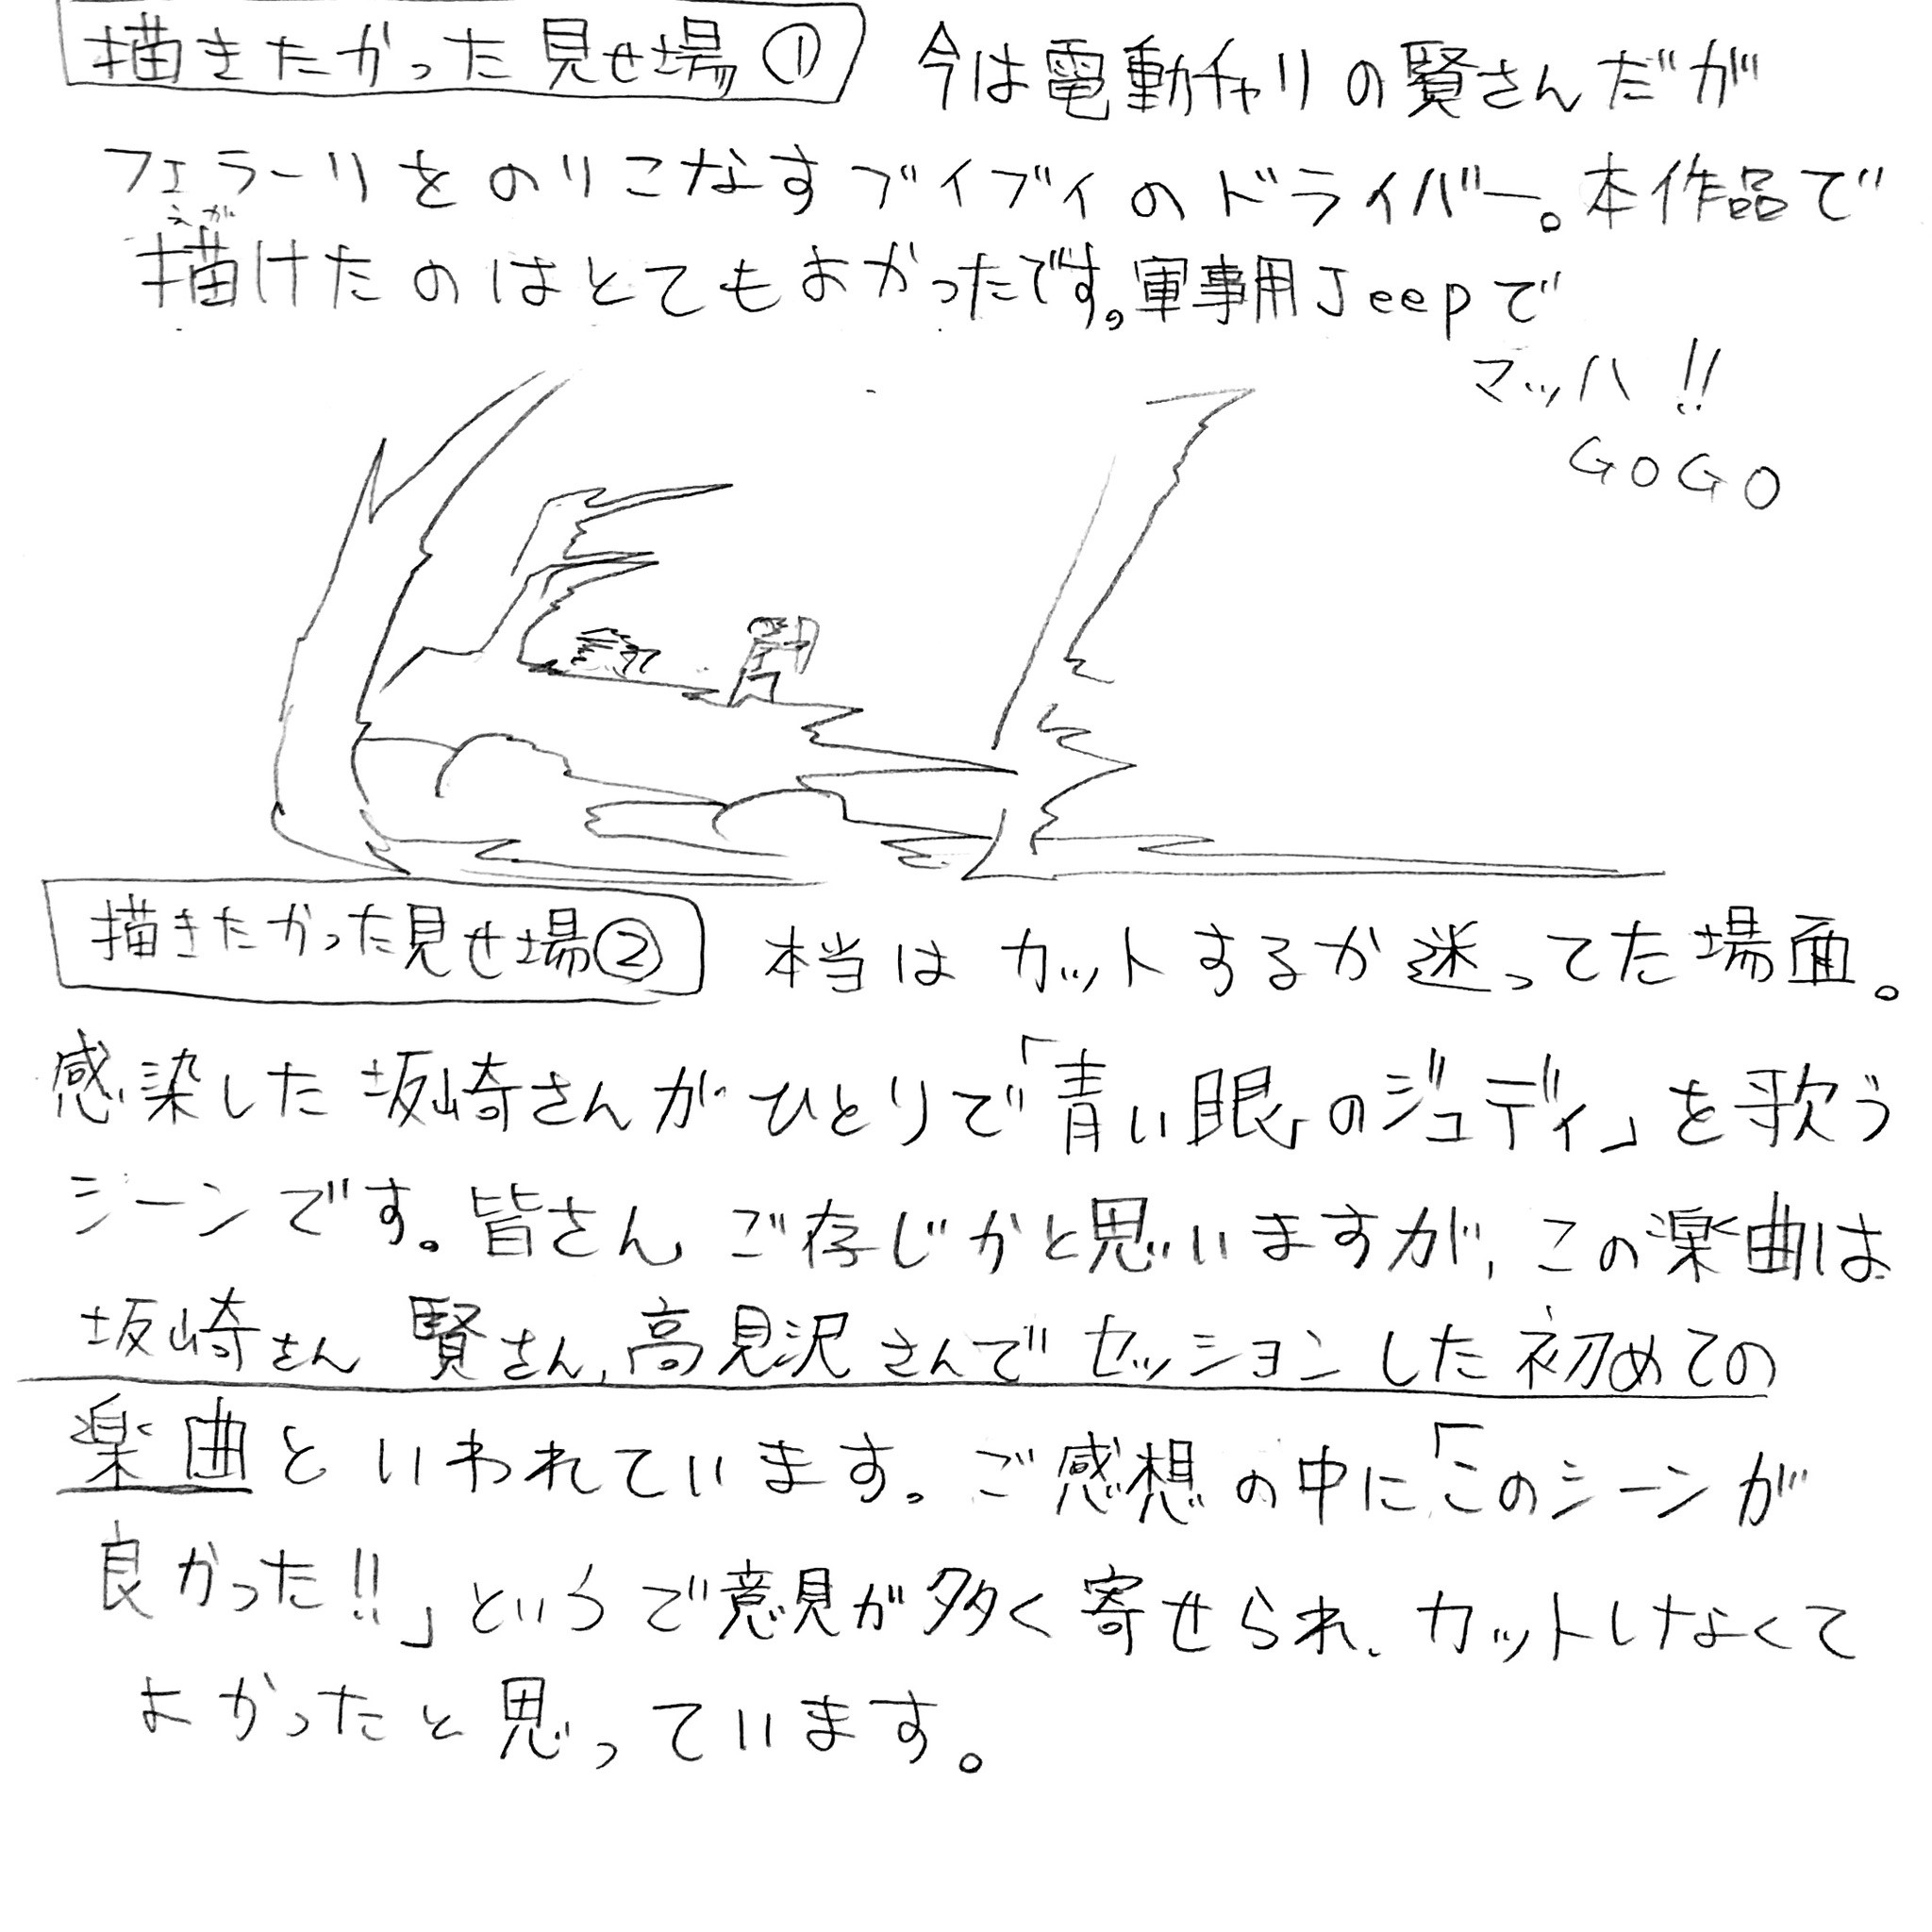 描きたかった見せ場① 今は電動チャリの賢さんだが
フェラーリをのりこなすブイブイのドライバー。本作品で
えが
描けたのはとてもよかったです。軍事用Jeepで
マッハ!!
GOGO
描きたかった見せ場② 本当はカットするか迷ってた場面。
感染した坂崎さんがひとりで「青い眼のジュディ」を歌う
シーンです。皆さんご存じかと思いますが、この楽曲は
坂崎さん 賢さん、高見沢さんでセッションした初めての
楽曲といわれています。ご感想の中に「このシーンが
良かった!!」というご意見が多く寄せられ、カットしなくて
よかったと思っています。